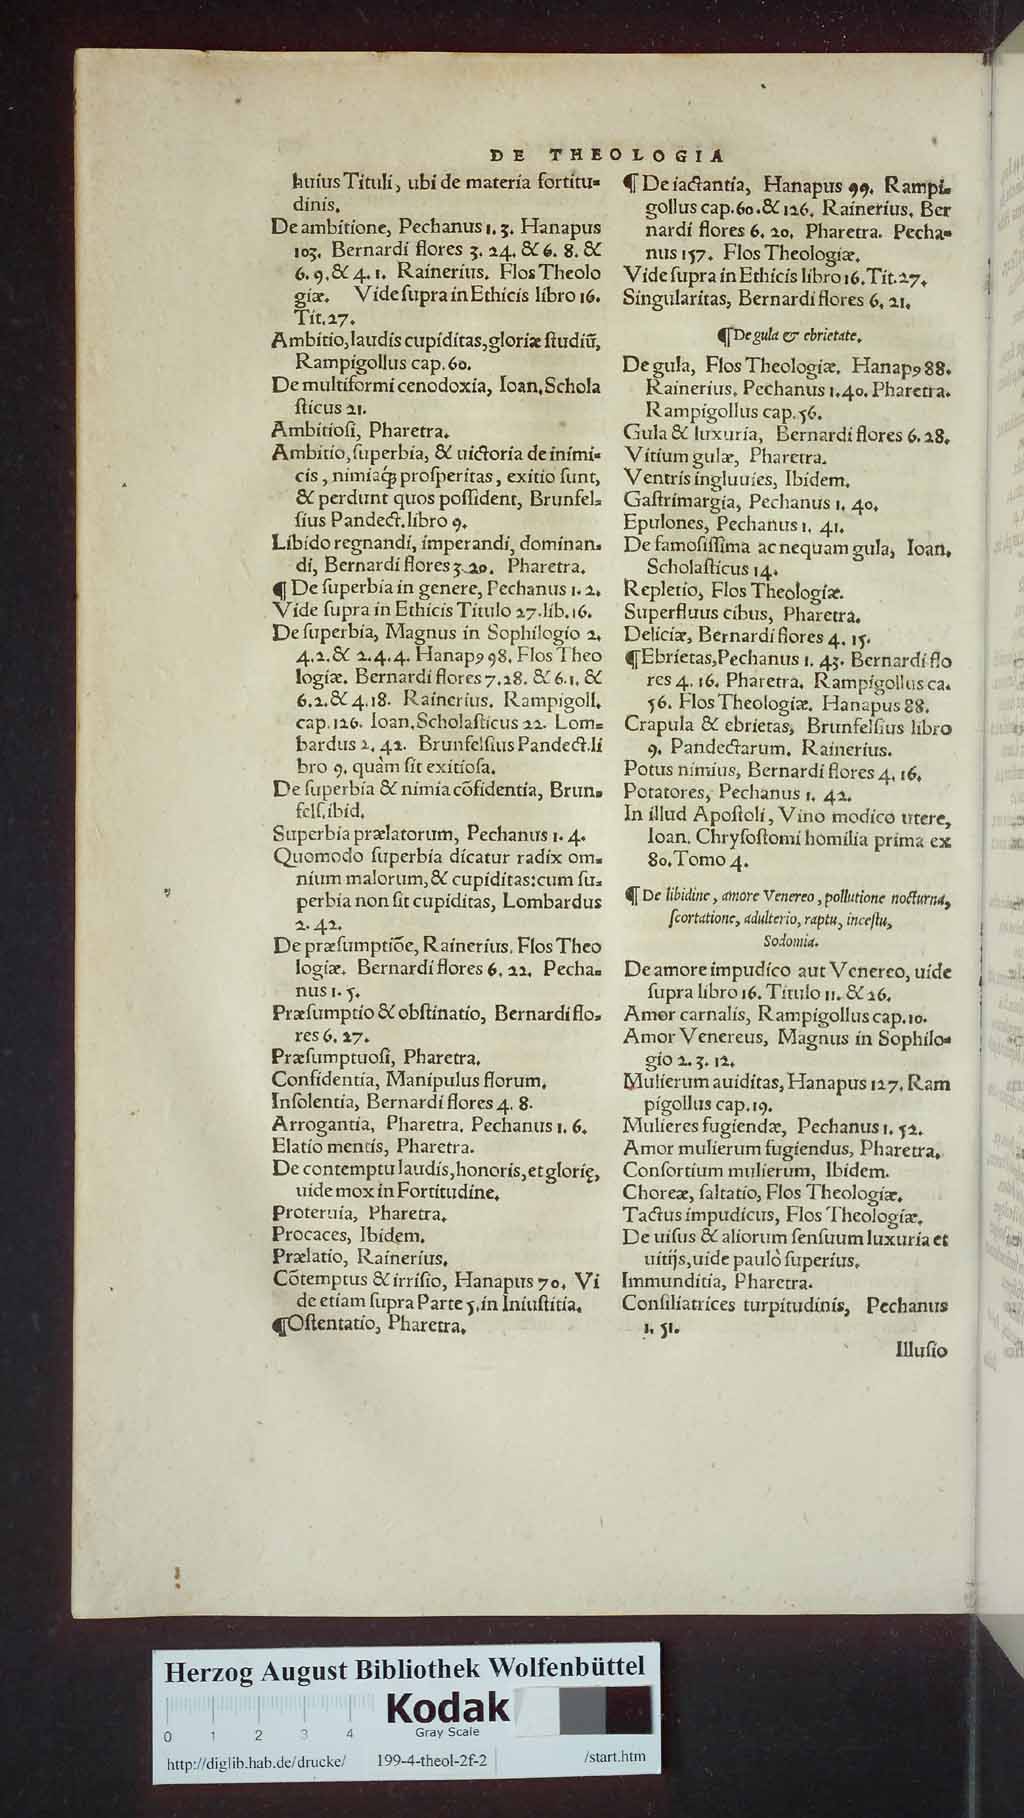 DE THEOLOGIA
huius Tituli, ubi de materia fortitu-
dinis.
De ambitione, Pechanus 1. 3. Hanapus
103. Bernardi flores 3. 24. & 6. 8. &
6. 9. & 4. 1. Rainerius. Flos Theolo
giæ. Vide supra in Ethicis libro 16.
Tit. 27.
Ambitio, laudis cupiditas, gloriæ studiũ,
Rampigollus cap. 60.
De multiformi cenodoxia, Ioan. Schola
sticus 21.
Ambitiosi, Pharetra.
Ambitio, superbia, & uictoria de inimi-
cis, nimiaq́; prosperitas, exitio sunt,
& perdunt quos possident, Brunfel-
sius Pandect. libro 9.
Libido regnandi, imperandi, dominan-
di, Bernardi flores 3. 20. Pharetra.
¶ De superbia in genere, Pechanus 1. 2.
Vide supra in Ethicis Titulo 27. lib. 16.
De superbia, Magnus in Sophilogio 2.
4. 2. & 2. 4. 4. Hanapꝰ 98. Flos Theo
logiæ. Bernardi flores 7. 28. & 6. 1. &
6. 2. & 4. 18. Rainerius. Rampigoll.
cap. 126. Ioan. Scholasticus 22. Lom-
bardus 2. 42. Brunfelsius Pandect. li
bro 9. quàm sit exitiosa.
De superbia & nimia cõfidentia, Brun-
fels. ibid.
Superbia prælatorum, Pechanus 1. 4.
Quomodo superbia dicatur radix om-
nium malorum, & cupiditas: cum su-
perbia non sit cupiditas, Lombardus
2. 42.
De præsumptiõe, Rainerius. Flos Theo
logiæ. Bernardi flores 6. 22. Pecha-
nus 1. 5.
Præsumptio & obstinatio, Bernardi flo-
res 6. 27.
Præsumptuosi, Pharetra.
Confidentia, Manipulus florum.
Insolentia, Bernardi flores 4. 8.
Arrogantia, Pharetra. Pechanus 1. 6.
Elatio mentis, Pharetra.
De contemptu laudis, honoris, et glorię,
uide mox in Fortitudine.
Proteruia, Pharetra.
Procaces, Ibidem.
Prælatio, Rainerius.
Cõtemptus & irrisio, Hanapus 70. Vi
de etiam supra Parte 5. in Iniustitia.
¶Ostentatio, Pharetra.
¶ De iactantia, Hanapus 99. Rampi-
gollus cap. 60. & 126. Rainerius. Ber
nardi flores 6. 20. Pharetra. Pecha-
nus 157. Flos Theologiæ.
Vide supra in Ethicis libro 16. Tit. 27.
Singularitas, Bernardi flores 6. 21.
¶De gula & ebrietate.
De gula, Flos Theologiæ. Hanapꝰ 88.
Rainerius. Pechanus 1. 40. Pharetra.
Rampigollus cap. 56.
Gula & luxuria, Bernardi flores 6. 28.
Vitium gulæ, Pharetra.
Ventris ingluuies, Ibidem.
Gastrimargia, Pechanus 1. 40.
Epulones, Pechanus 1. 41.
De famosissima ac nequam gula, Ioan.
Scholasticus 14.
Repletio, Flos Theologiæ.
Superfluus cibus, Pharetra.
Deliciæ, Bernardi flores 4. 15.
¶Ebrietas, Pechanus 1. 43. Bernardi flo
res 4. 16. Pharetra. Rampigollus ca.
56. Flos Theologiæ. Hanapus 88.
Crapula & ebrietas, Brunfelsius libro
9. Pandectarum. Rainerius.
Potus nimius, Bernardi flores 4. 16.
Potatores, Pechanus 1. 42.
In illud Apostoli, Vino modico utere,
Ioan. Chrysostomi homilia prima ex
80. Tomo 4.
¶ De libidine, amore Venereo, pollutione nocturna,
scortatione, adulterio, raptu, incestu,
Sodomia.
De amore impudico aut Venereo, uide
supra libro 16. Titulo 11. & 26.
Amor carnalis, Rampigollus cap. 10.
Amor Venereus, Magnus in Sophilo-
gio 2. 3. 12.
Mulierum auiditas, Hanapus 127. Ram
pigollus cap. 19.
Mulieres fugiendæ, Pechanus 1. 52.
Amor mulierum fugiendus, Pharetra.
Consortium mulierum, Ibidem.
Choreæ, saltatio, Flos Theologiæ.
Tactus impudicus, Flos Theologiæ.
De uisus & aliorum sensuum luxuria et
uitijs, uide paulò superius.
Immunditia, Pharetra.
Consiliatrices turpitudinis, Pechanus
1. 51.
Illusio
Herzog August Bibliothek Wolfenbüttel
Kodak
Gray Scale
0 1 2 3 4
http://diglib.hab.de/drucke/ 199-4-theol-2f-2 /start.htm